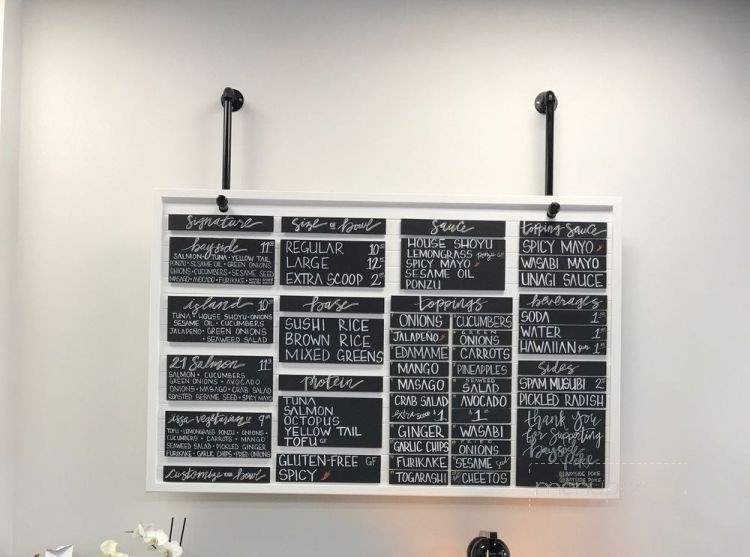 Signature
bayside 11
SALMON • TUNA • YELLOW TAIL
PONZU • SESAME OIL • GREEN ONIONS
ONIONS • CUCUMBERS • SESAME SEED
MASAGO • AVOCADO • FURIKAKE
island 10
TUNA • HOUSE SHOYU • ONIONS
SESAME OIL • CUCUMBERS
JALAPEÑO • GREEN ONIONS
• SEAWEED SALAD
21 Salmon 11
SALMON • CUCUMBERS
GREEN ONIONS • AVOCADO
ONIONS • MASAGO • CRAB SALAD
ROASTED SESAME SEED • SPICY MAYO
issa vegetarian 9
TOFU • LEMONGRASS PONZU • ONIONS •
CUCUMBERS • CARROTS • MANGO
SEAWEED SALAD • PICKLED GINGER
FURIKAKE • GARLIC CHIPS • FRIED ONIONS
customize your bowl
Size of bowl
REGULAR 10
LARGE 12
EXTRA SCOOP 2
base
SUSHI RICE
BROWN RICE
MIXED GREENS
protein
TUNA
SALMON
OCTOPUS
YELLOW TAIL
TOFU GF
GLUTEN-FREE GF
SPICY
Sauce
HOUSE SHOYU
LEMONGRASS ponzu GF
SPICY MAYO
SESAME OIL
PONZU
toppings
ONIONS CUCUMBERS
JALAPEÑO GREEN ONIONS
EDAMAME CARROTS
MANGO PINEAPPLES
MASAGO SEAWEED SALAD
CRAB SALAD AVOCADO
extra scoop $1 $1
GINGER WASABI
GARLIC CHIPS FRIED ONIONS
FURIKAKE SESAME seed
TOGARASHI CHEETOS
topping Sauce
SPICY MAYO
WASABI MAYO
UNAGI SAUCE
beverages
SODA 1
WATER 1
HAWAIIAN sun 1
Sides
SPAM MUSUBI 2
PICKLED RADISH
thank you
for supporting
bayside
poke
BAYSIDE POKE
BAYSIDE POKE